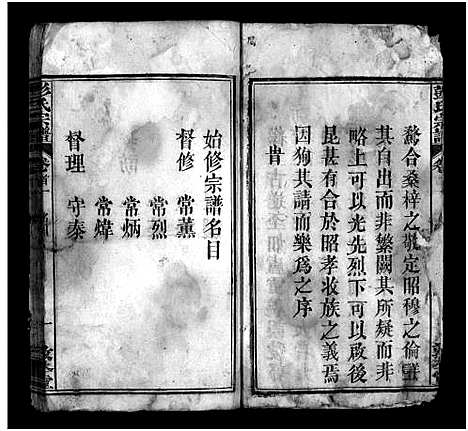 彭氏宗譜
卷首
合桑梓之敬定昭穆之倫詳
其自出而非繁闕其所疑而非
略上可以光先烈下可以啟後
昆甚有合於昭孝收族之義焉
因狥其請而樂為之序
旹
始修宗譜名目
督修 常薰
常烈
常炳
常煒
督理 守泰
彭氏宗譜
卷首
一